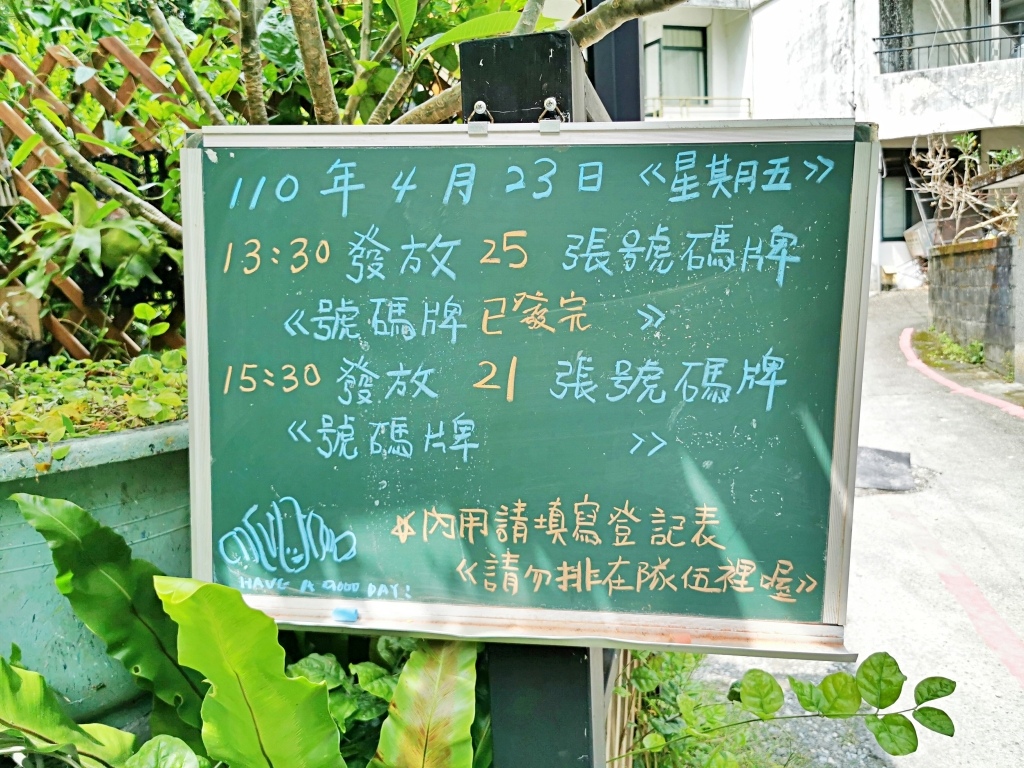 110年4月23日 《星期五》
13:30 發放 25 張號碼牌
《號碼牌已發完 》
15:30 發放 21 張號碼牌
《號碼牌 》
☆內用請填寫登記表
《請勿排在隊伍裡喔》
HAVE A GOOD DAY!